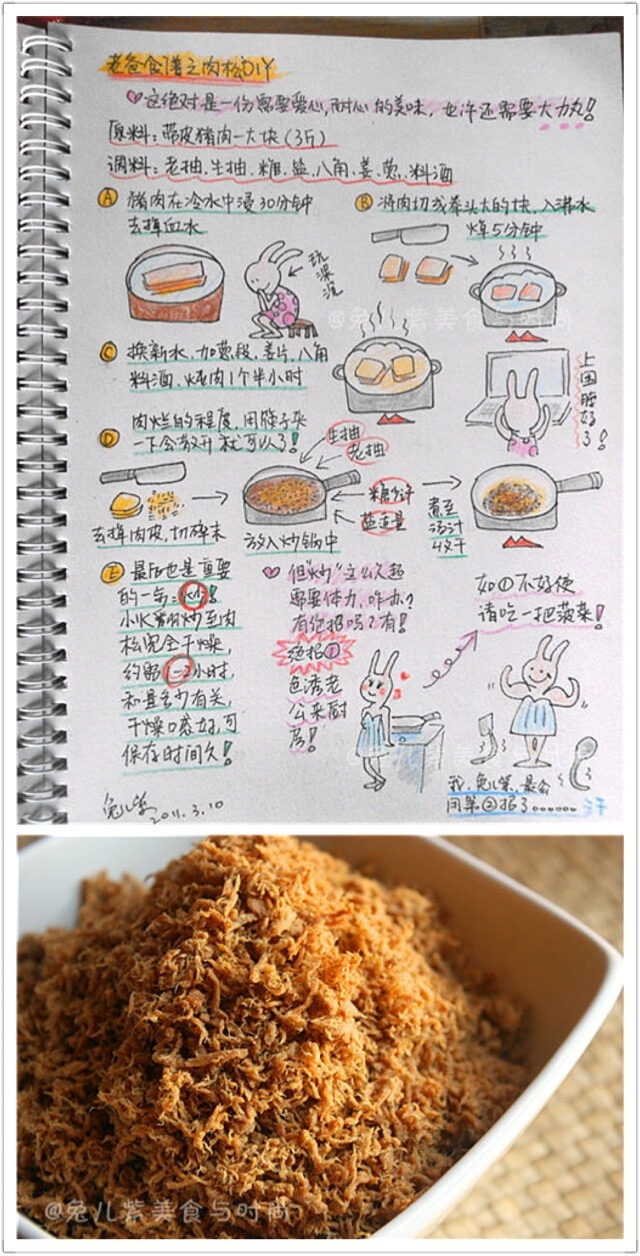 老爸食谱之肉松DIY
这绝对是一份需要爱心,耐心的美味,也许还需要大力丸!
原料:带皮猪肉一大块(3斤)
调料:老抽.生抽.糖.盐.八角.姜.葱.料酒
A 猪肉在冷水中浸30分钟
去掉血水
玩深沉
B 将肉切成拳头大的块,入沸水
焯5分钟
@兔儿紫美食与时尚
C 换新水,加葱段,姜片,八角
料酒.炖肉1个半小时
上围脖好了!
D 肉烂的程度,用筷子夹
一下会散开就可以了!
生抽
老抽
糖少许
盐适量
去掉肉皮,切碎末
放入炒锅中
煮至
汤汁
收干
E 最后也是重要
的一步:火小!
小火翻炒至肉
松完全干燥,
约需1-2小时,
和量多少有关,
干燥口感好,可
保存时间久!
但“炒”这么久超
需要体力,咋办?
有绝招吗?有!
绝招①
色诱老
公来厨
房!
如①不好使
请吃一把菠菜!
我,兔儿紫,最会
用第②招了......汗
兔儿紫
2011.3.10
@兔儿紫美食与时尚